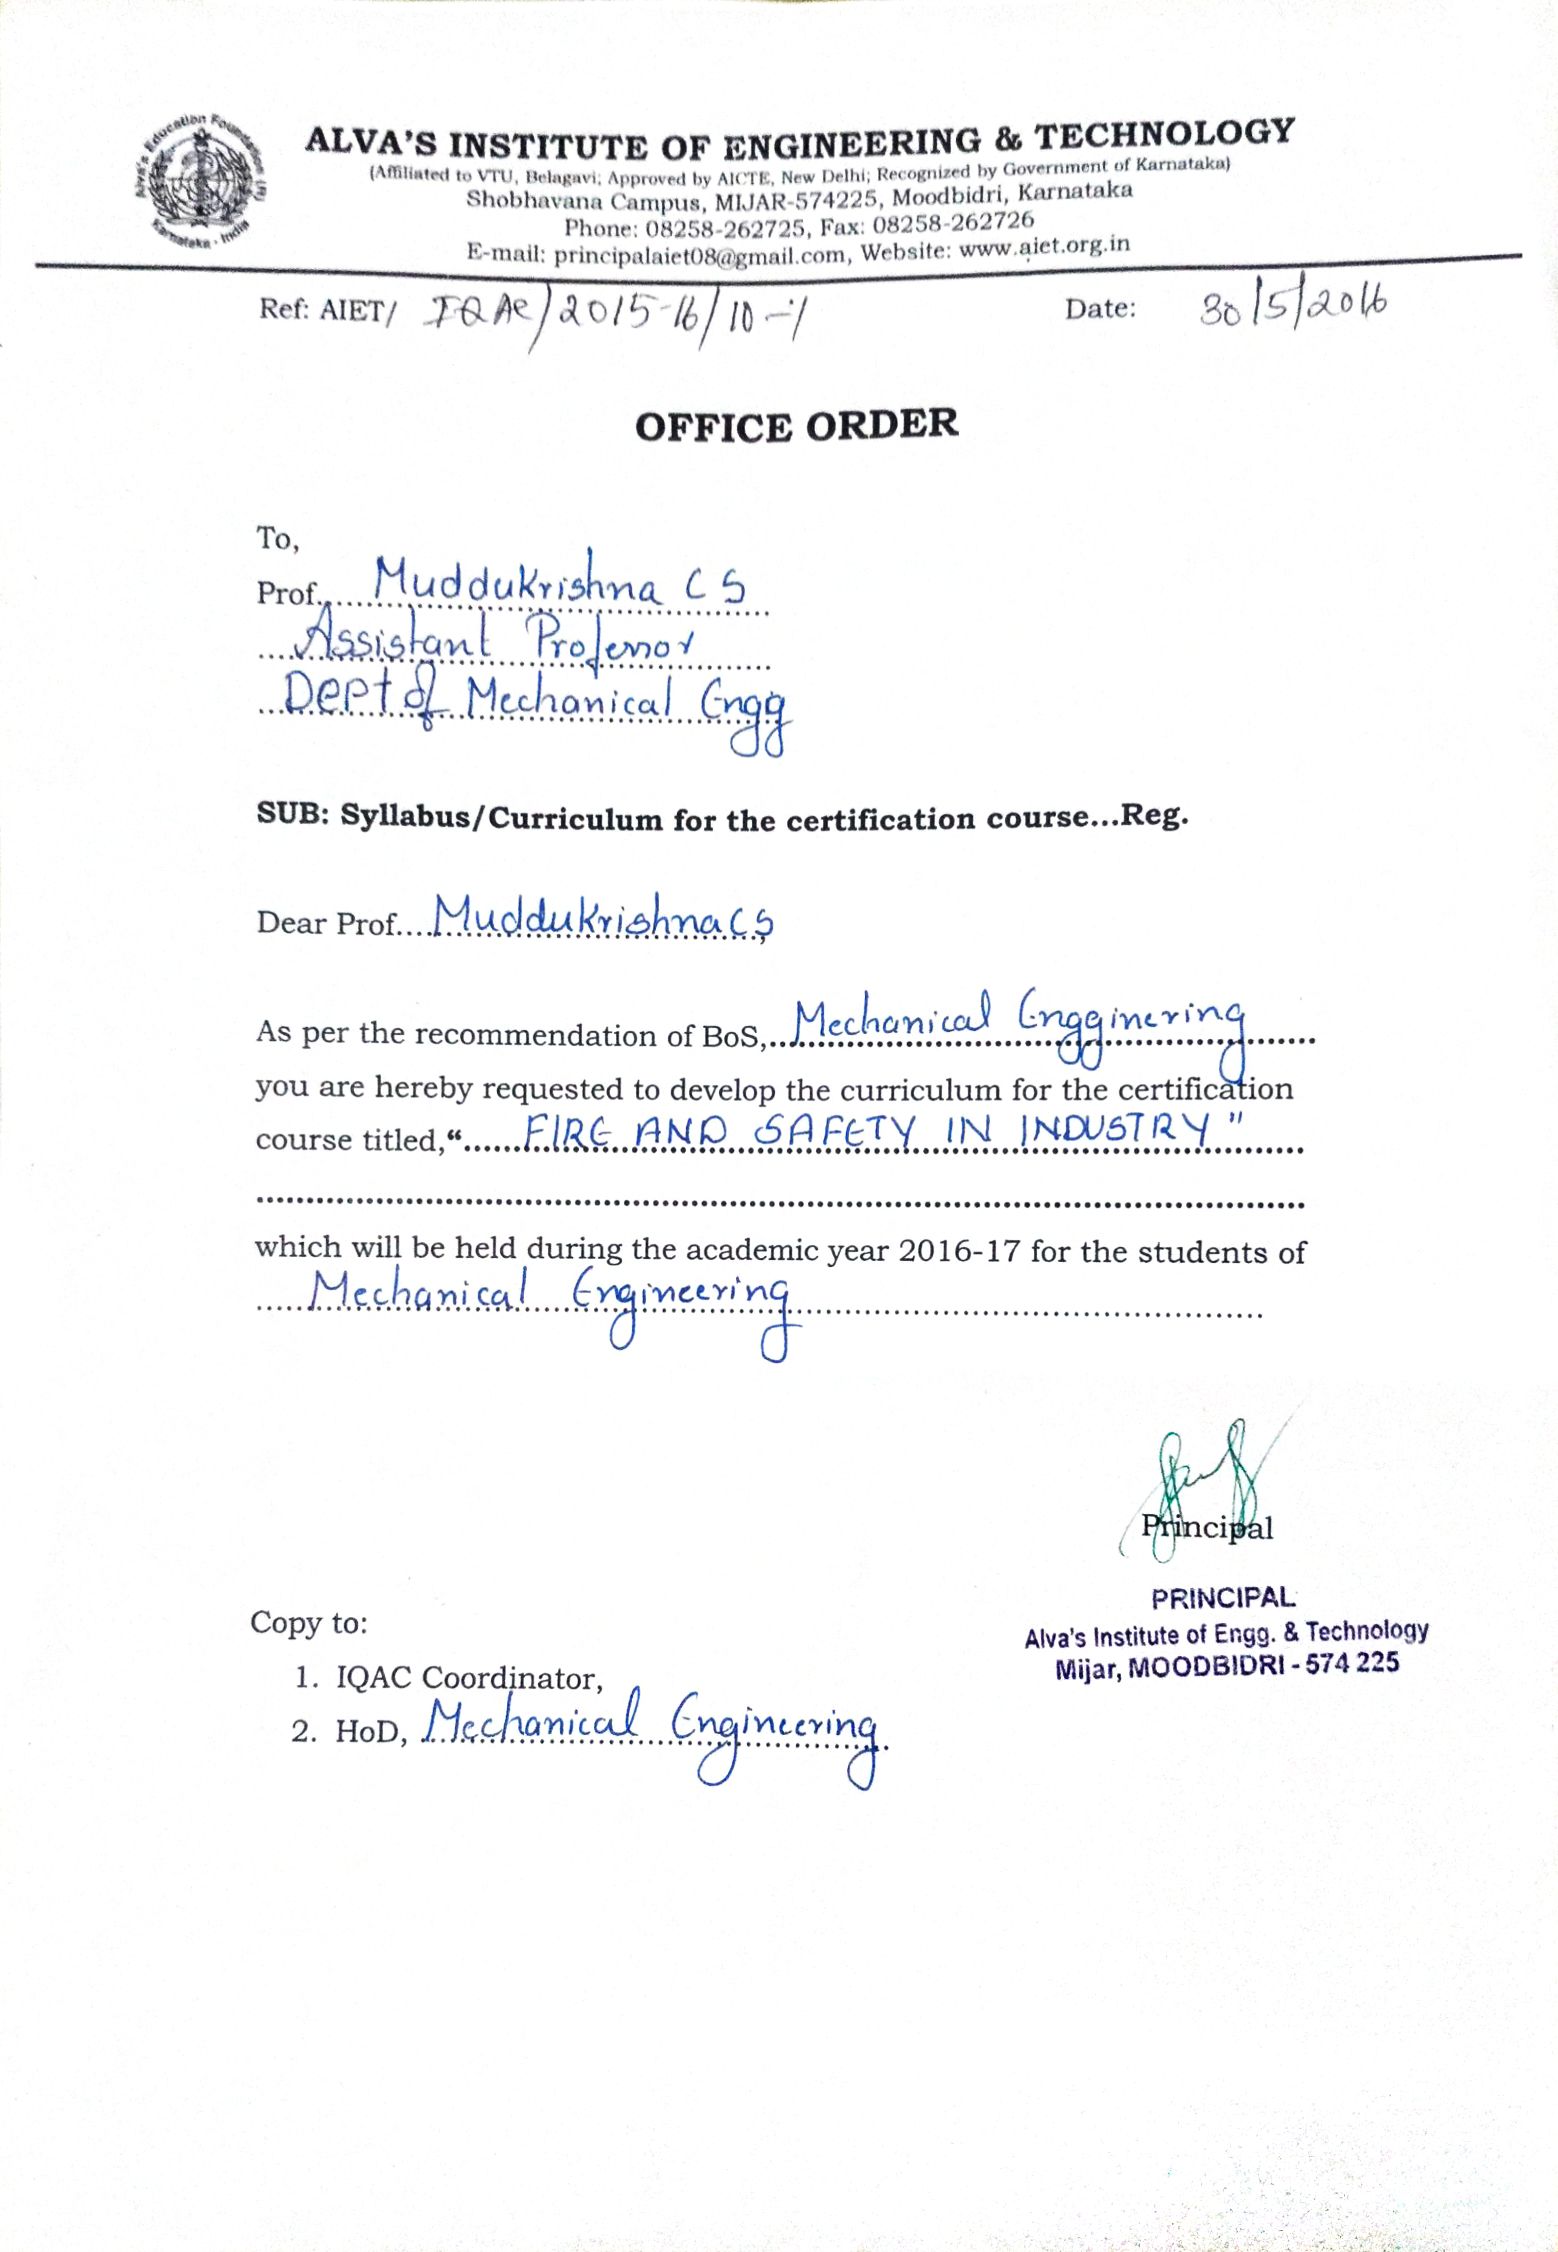 Alva's Education Foundation (R)
Karnataka - India
ALVA'S INSTITUTE OF ENGINEERING & TECHNOLOGY
(Affiliated to VTU, Belagavi; Approved by AICTE, New Delhi; Recognized by Government of Karnataka)
Shobhavana Campus, MIJAR-574225, Moodbidri, Karnataka
Phone: 08258-262725, Fax: 08258-262726
E-mail: principalaiet08@gmail.com, Website: www.aiet.org.in
Ref: AIET/ IQAC/2015-16/10 Date: 30/5/2016
OFFICE ORDER
To,
Prof....... Muddukrishna C S
.... Assistant Professor
... Dept of Mechanical Engg
SUB: Syllabus/Curriculum for the certification course...Reg.
Dear Prof.... Muddukrishna C S,
As per the recommendation of BoS,.. Mechanical Engginering .......
you are hereby requested to develop the curriculum for the certification
course titled,“...... FIRE AND SAFETY IN INDUSTRY "
which will be held during the academic year 2016-17 for the students of
..... Mechanical Engineering ..........
Principal
PRINCIPAL
Alva's Institute of Engg. & Technology
Mijar, MOODBIDRI - 574 225
Copy to:
1. IQAC Coordinator,
2. HoD, Mechanical Engineering.